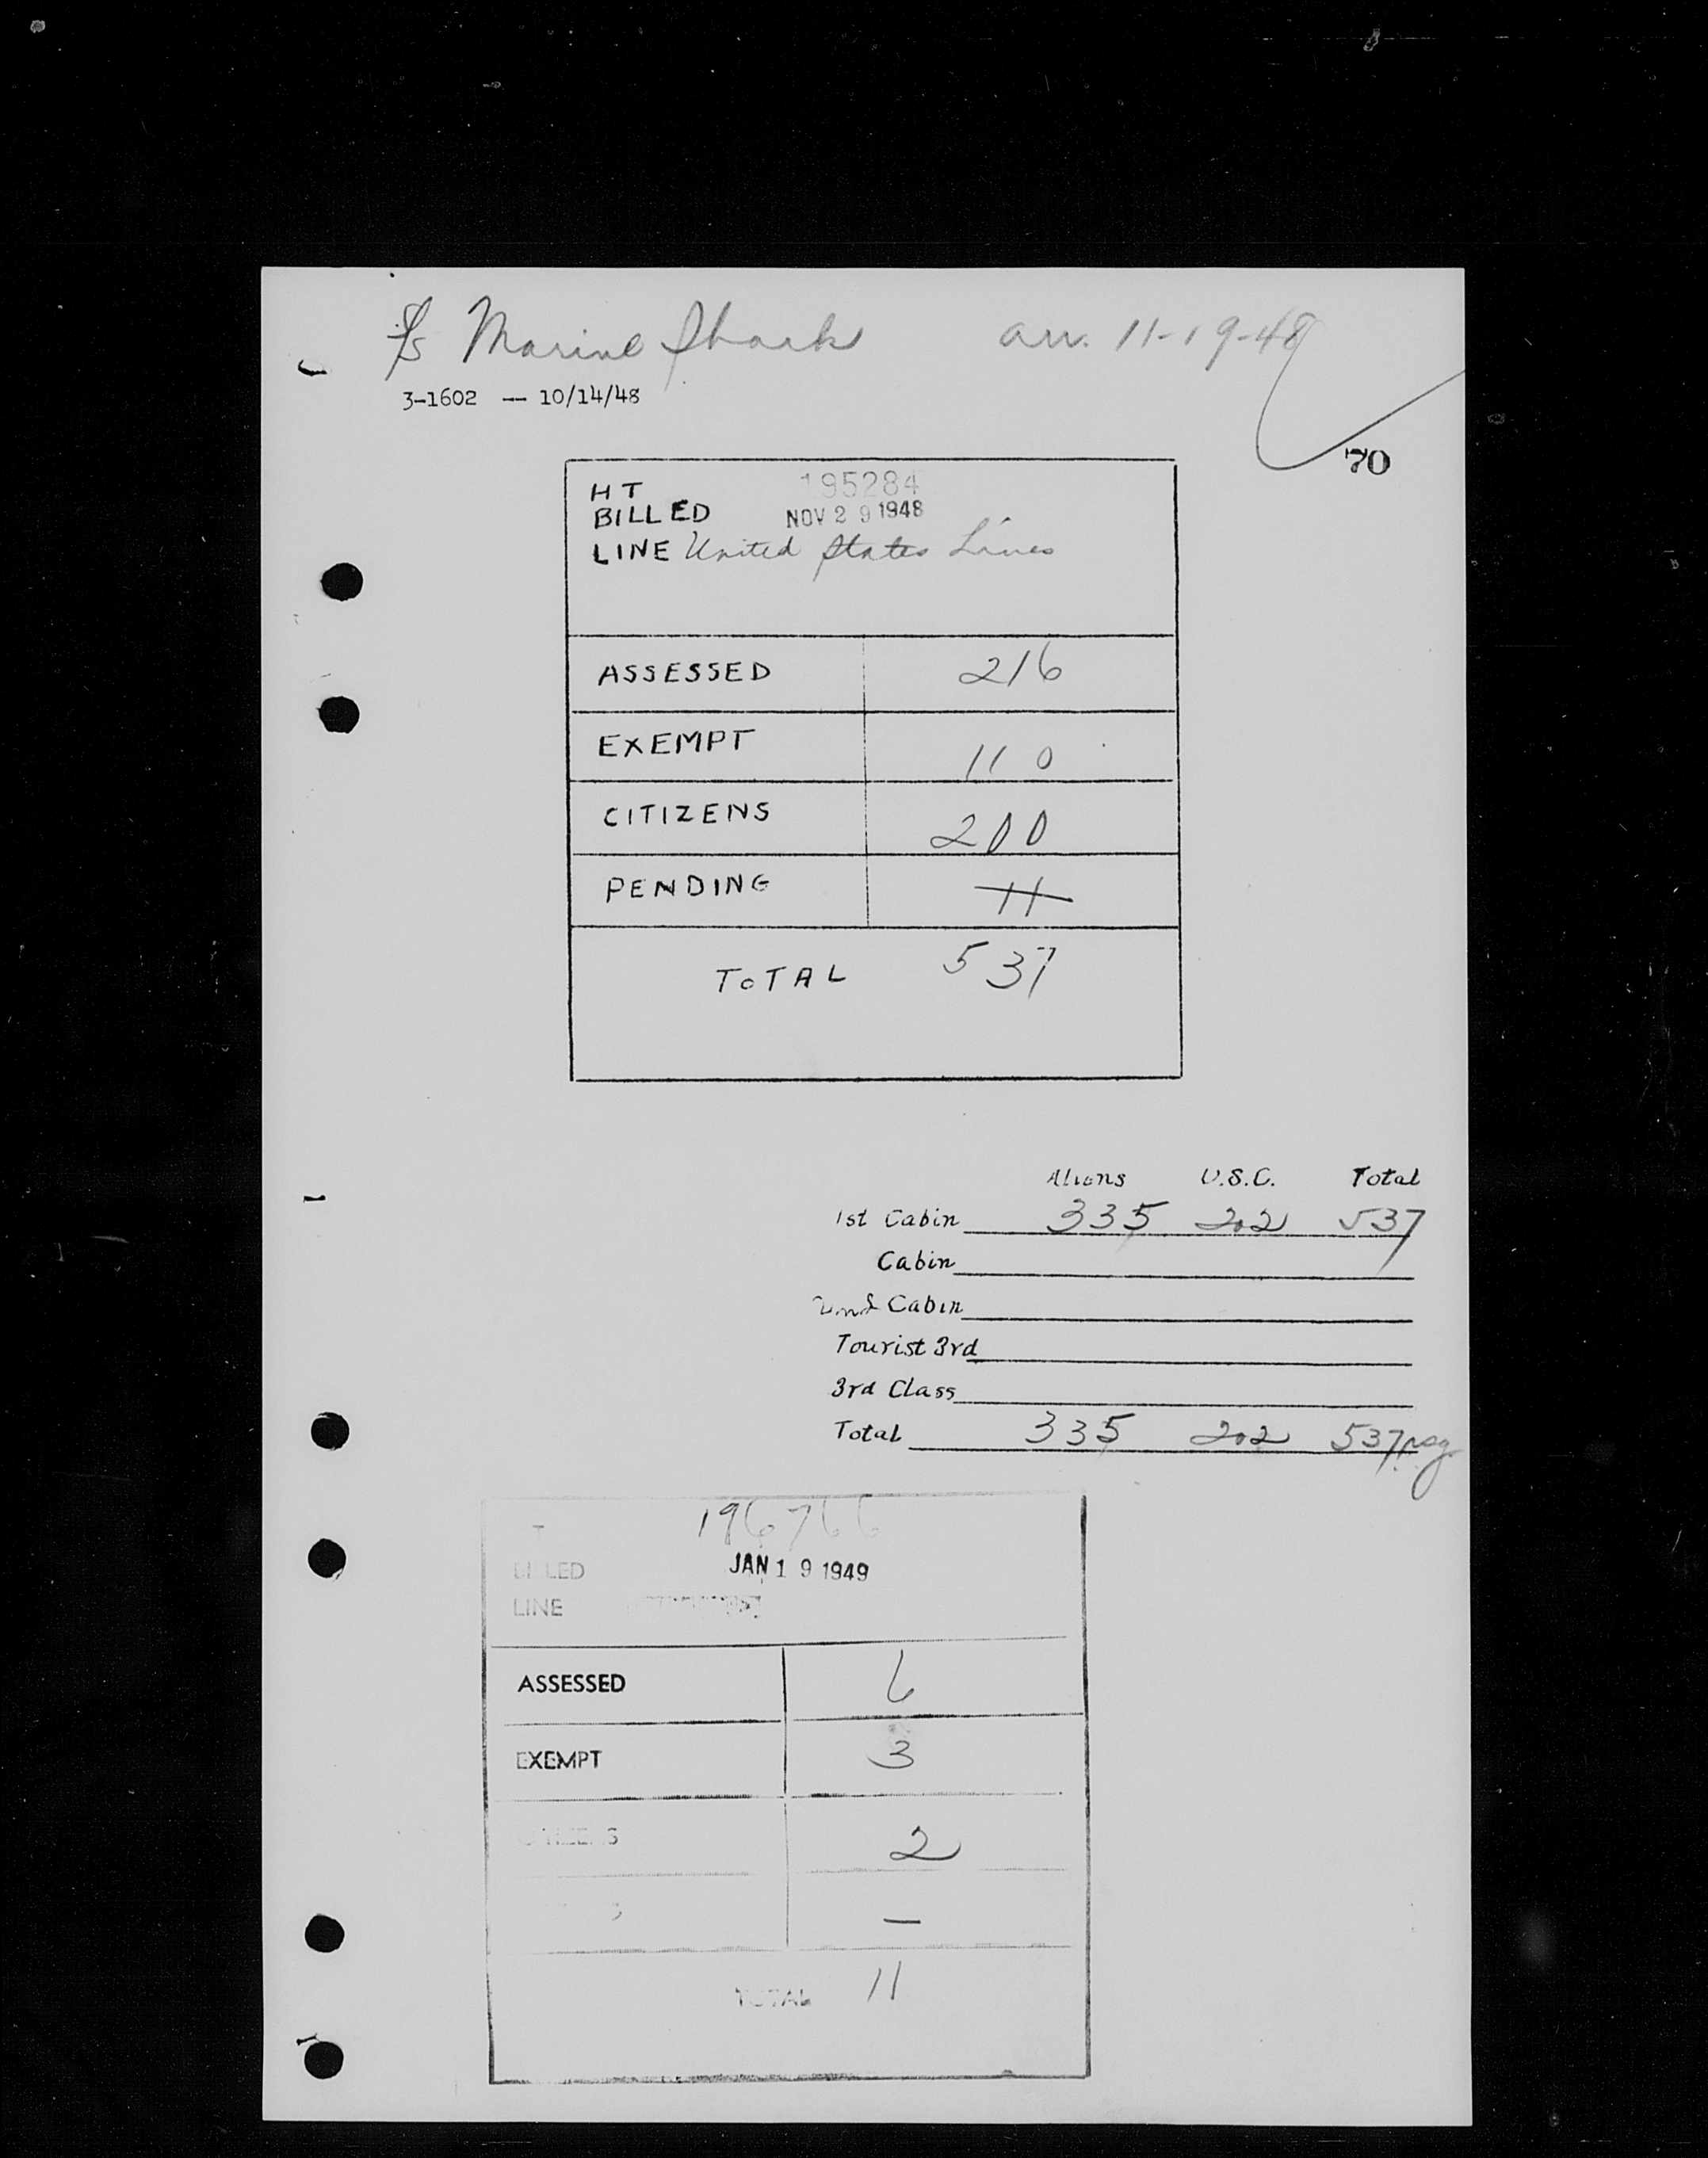 S/S Marine Shark arr. 11-19-48
3-1602 -- 10/14/48
70
HT 195284
BILLED NOV 29 1948
LINE United States Lines
ASSESSED 216
EXEMPT 110
CITIZENS 200
PENDING 11
TOTAL 537
Aliens U.S.C. Total
1st Cabin 335 202 537
Cabin
2nd Cabin
Tourist 3rd
3rd Class
Total 335 202 537
T 196766
BILLED JAN 19 1949
LINE
ASSESSED 6
EXEMPT 3
CITIZENS 2
—
TOTAL 11